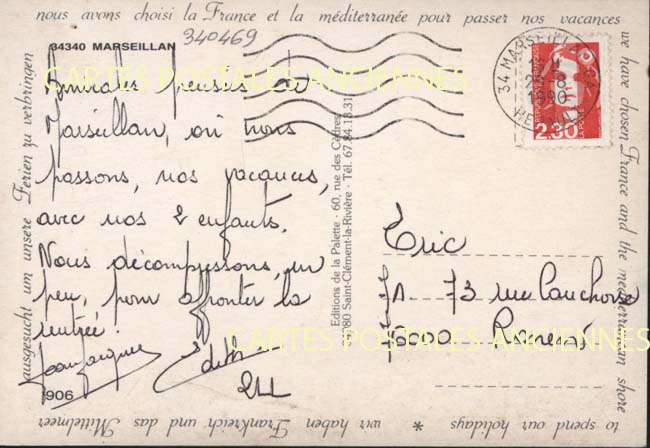 nous avons choisi la France et la méditerranée pour passer nos vacances
we have chosen France and the mediterranean shore
to spend our holidays * wir haben Frankreich und das Mittelmeer
ausgesucht um unsere Ferien zu verbringen
34340 MARSEILLAN
340469
CARTES POSTALES ANCIENNES
Amicales pensées de
Marseillan, où nous
passons, nos vacances,
avec nos 2 enfants.
Nous décompressons, un
peu, pour affronter la
rentrée.
Jean Jacques Edith
906
Editions de la Palette - 60, rue des Cèdres
980 Saint-Clément-la-Rivière - Tél. 67.84.18.31
34 MARSEILLAN
1990
HERAULT
2,30
Eric
73 rue
Rennes
CARTES POSTALES ANCIENNES